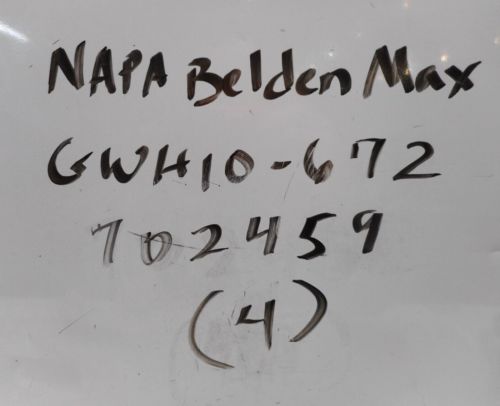 NAPA Belden Max
GWH10-672
702459
(4)